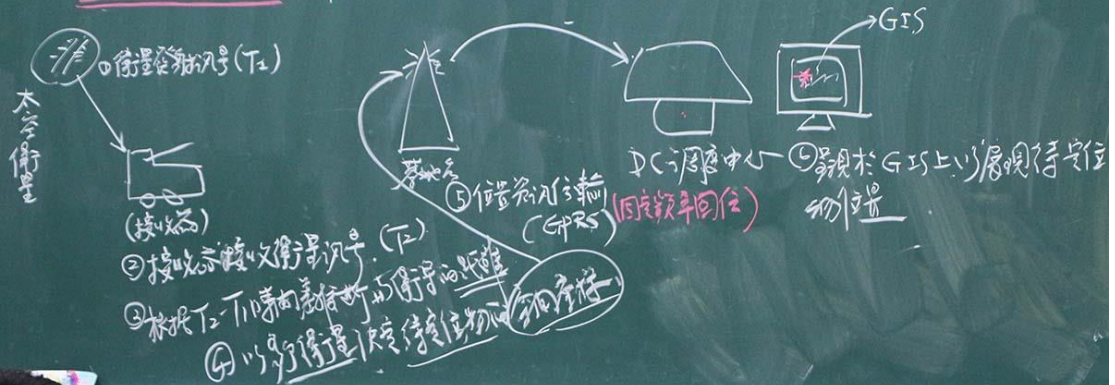 太空衛星
①衛星發射訊号(T1)
(接收器)
②接收器接收衛星訊号.(T2)
③根據T2-T1時間差估計與衛星的距離
④以多顆衛星決定待定位物的空間座標
基地台
⑤位置資訊傳輸
(GPRS)
DC→調度中心
(固定頻率回传)
GIS
⑥呈現於GIS上,以展現待定位
物位置